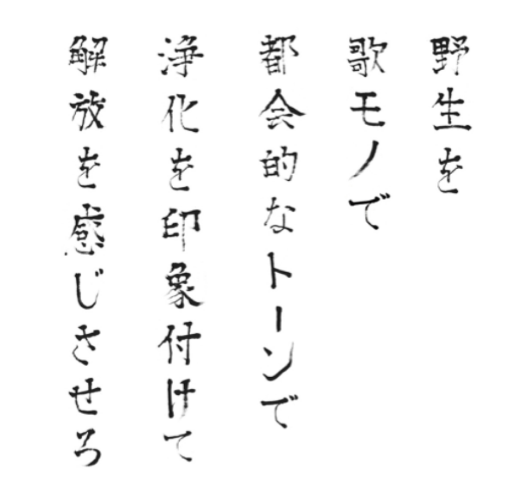 野生を
歌モノで
都会的なトーンで
浄化を印象付けて
解放を感じさせろ